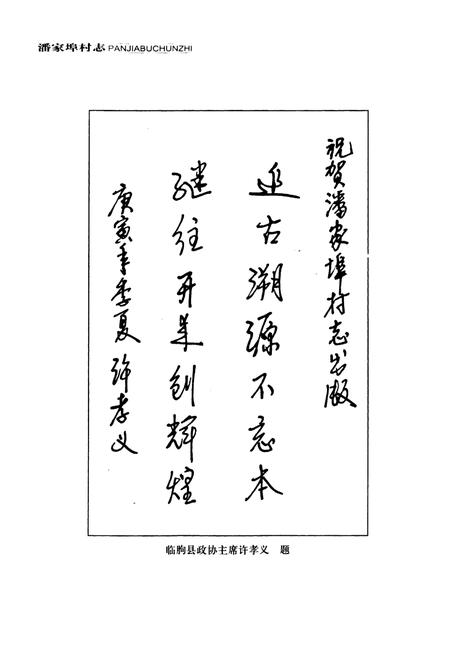 潘家埠村志 PANJIABUCHUNZHI
祝贺潘家埠村志出版
追古溯源不忘本
继往开来创辉煌
庚寅年季夏 许孝义
临朐县政协主席许孝义 题